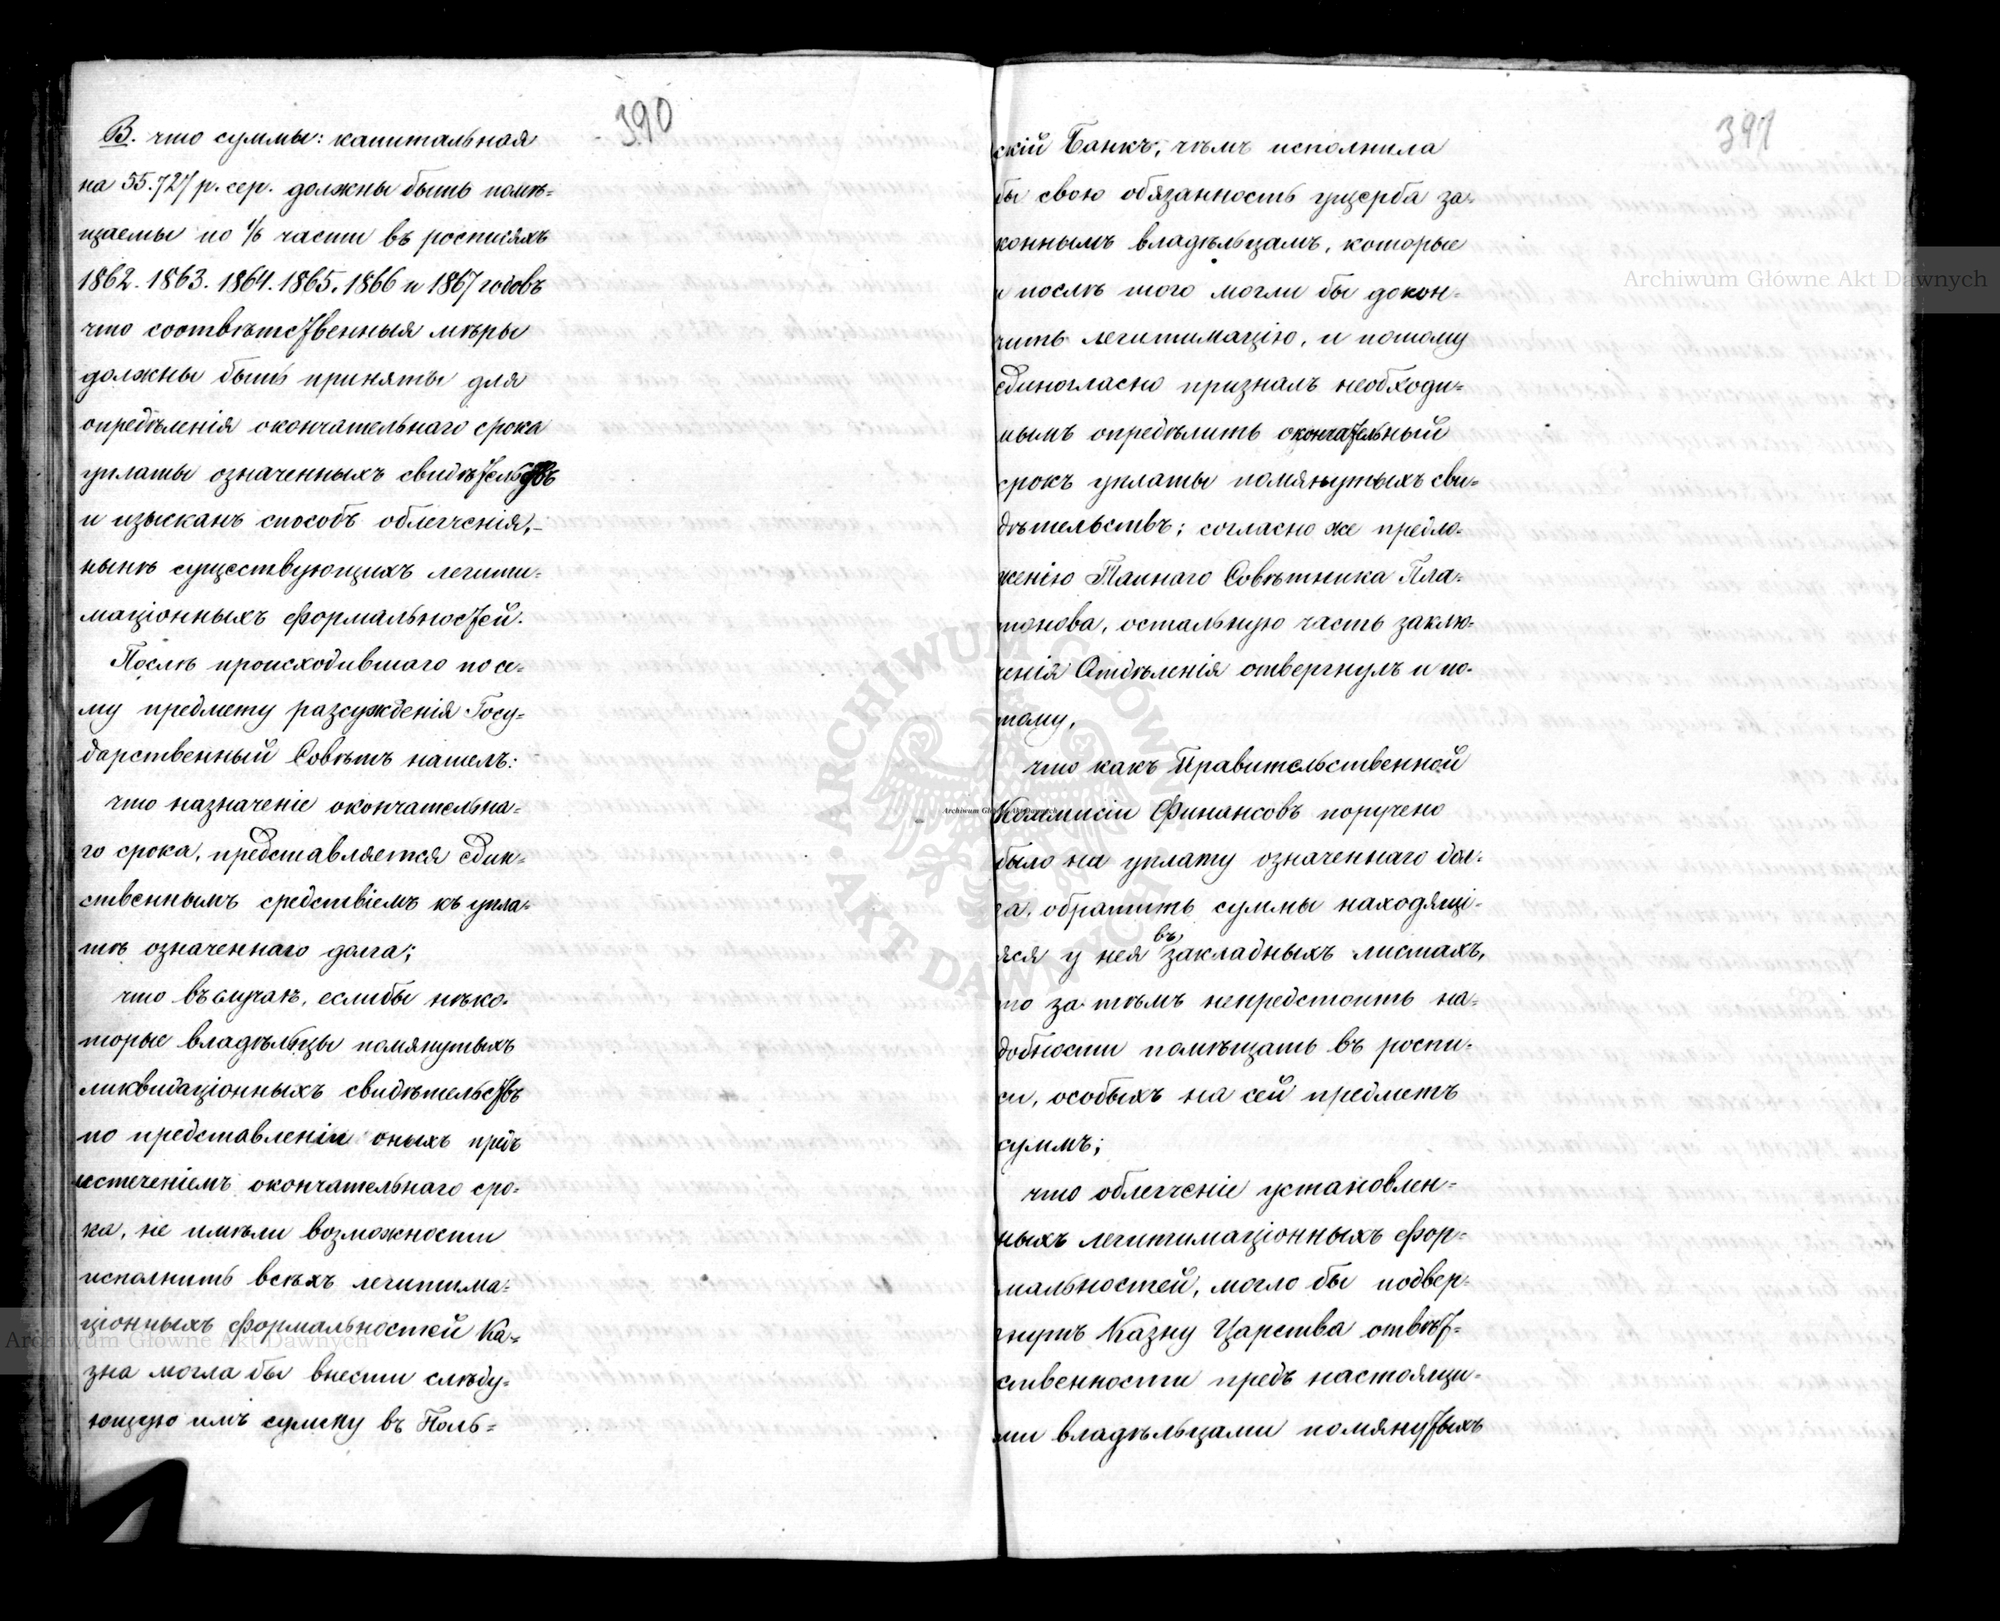 390
В. что суммы: капитальная
на 55.727 р. сер. должны быть помѣ-
щаемы по 1/6 части въ росписяхъ
1862. 1863. 1864. 1865. 1866 и 1867 годовъ
что соотвѣтственныя мѣры
должны быть приняты для
опредѣленія окончательнаго срока
уплаты означенныхъ свидѣтельствъ
и изысканъ способъ облегченія,-
нынѣ существующихъ легити-
маціонныхъ формальностей.
Послѣ происходившаго по се-
му предмету разсужденія Госу-
дарственный Совѣтъ нашелъ:
что назначеніе окончательна-
го срока, представляется един-
ственнымъ средствіемъ къ упла-
тѣ означеннаго долга;
что въ случаѣ, еслибы нѣко-
торые владѣльцы помянутыхъ
ликвидаціонныхъ свидѣтельствъ
по представленіи оныхъ предъ
истеченіемъ окончательнаго сро-
ка, не имѣли возможности
исполнить всѣхъ легитима-
ціонныхъ формальностей Ка-
зна могла бы внести слѣду-
ющую имъ сумму въ Поль-
391
скій Банкъ, чѣмъ исполнила
бы свою обязанность ущерба за-
коннымъ владѣльцамъ, которые
и послѣ того могли бы докон-
чить легитимацію, и потому
единогласно призналъ необходи-
мымъ опредѣлить окончательный
срокъ уплаты помянутыхъ сви-
дѣтельствъ; согласно же предло-
женію Тайнаго Совѣтника Пла-
тонова, остальную часть заклю-
ченія Отдѣленія отвергнулъ и по-
тому,
что какъ Правительственной
Коммисіи Финансовъ поручено
было на уплату означеннаго дол-
га, обратить суммы находящі-
яся у нея въ закладныхъ листахъ,
то за тѣмъ непредстоитъ на-
добности помѣщать въ роспи-
си, особыхъ на сей предметъ
суммъ;
что облегченіе установлен-
ныхъ легитимаціонныхъ фор-
мальностей, могло бы подвер-
гнуть Казну Царства отвѣт-
ственности предъ настоящи-
ми владѣльцами помянутыхъ
Archiwum Główne Akt Dawnych
Archiwum Główne Akt Dawnych
Archiwum Główne Akt Dawnych
ARCHIWUM GŁÓWNE AKT DAWNYCH